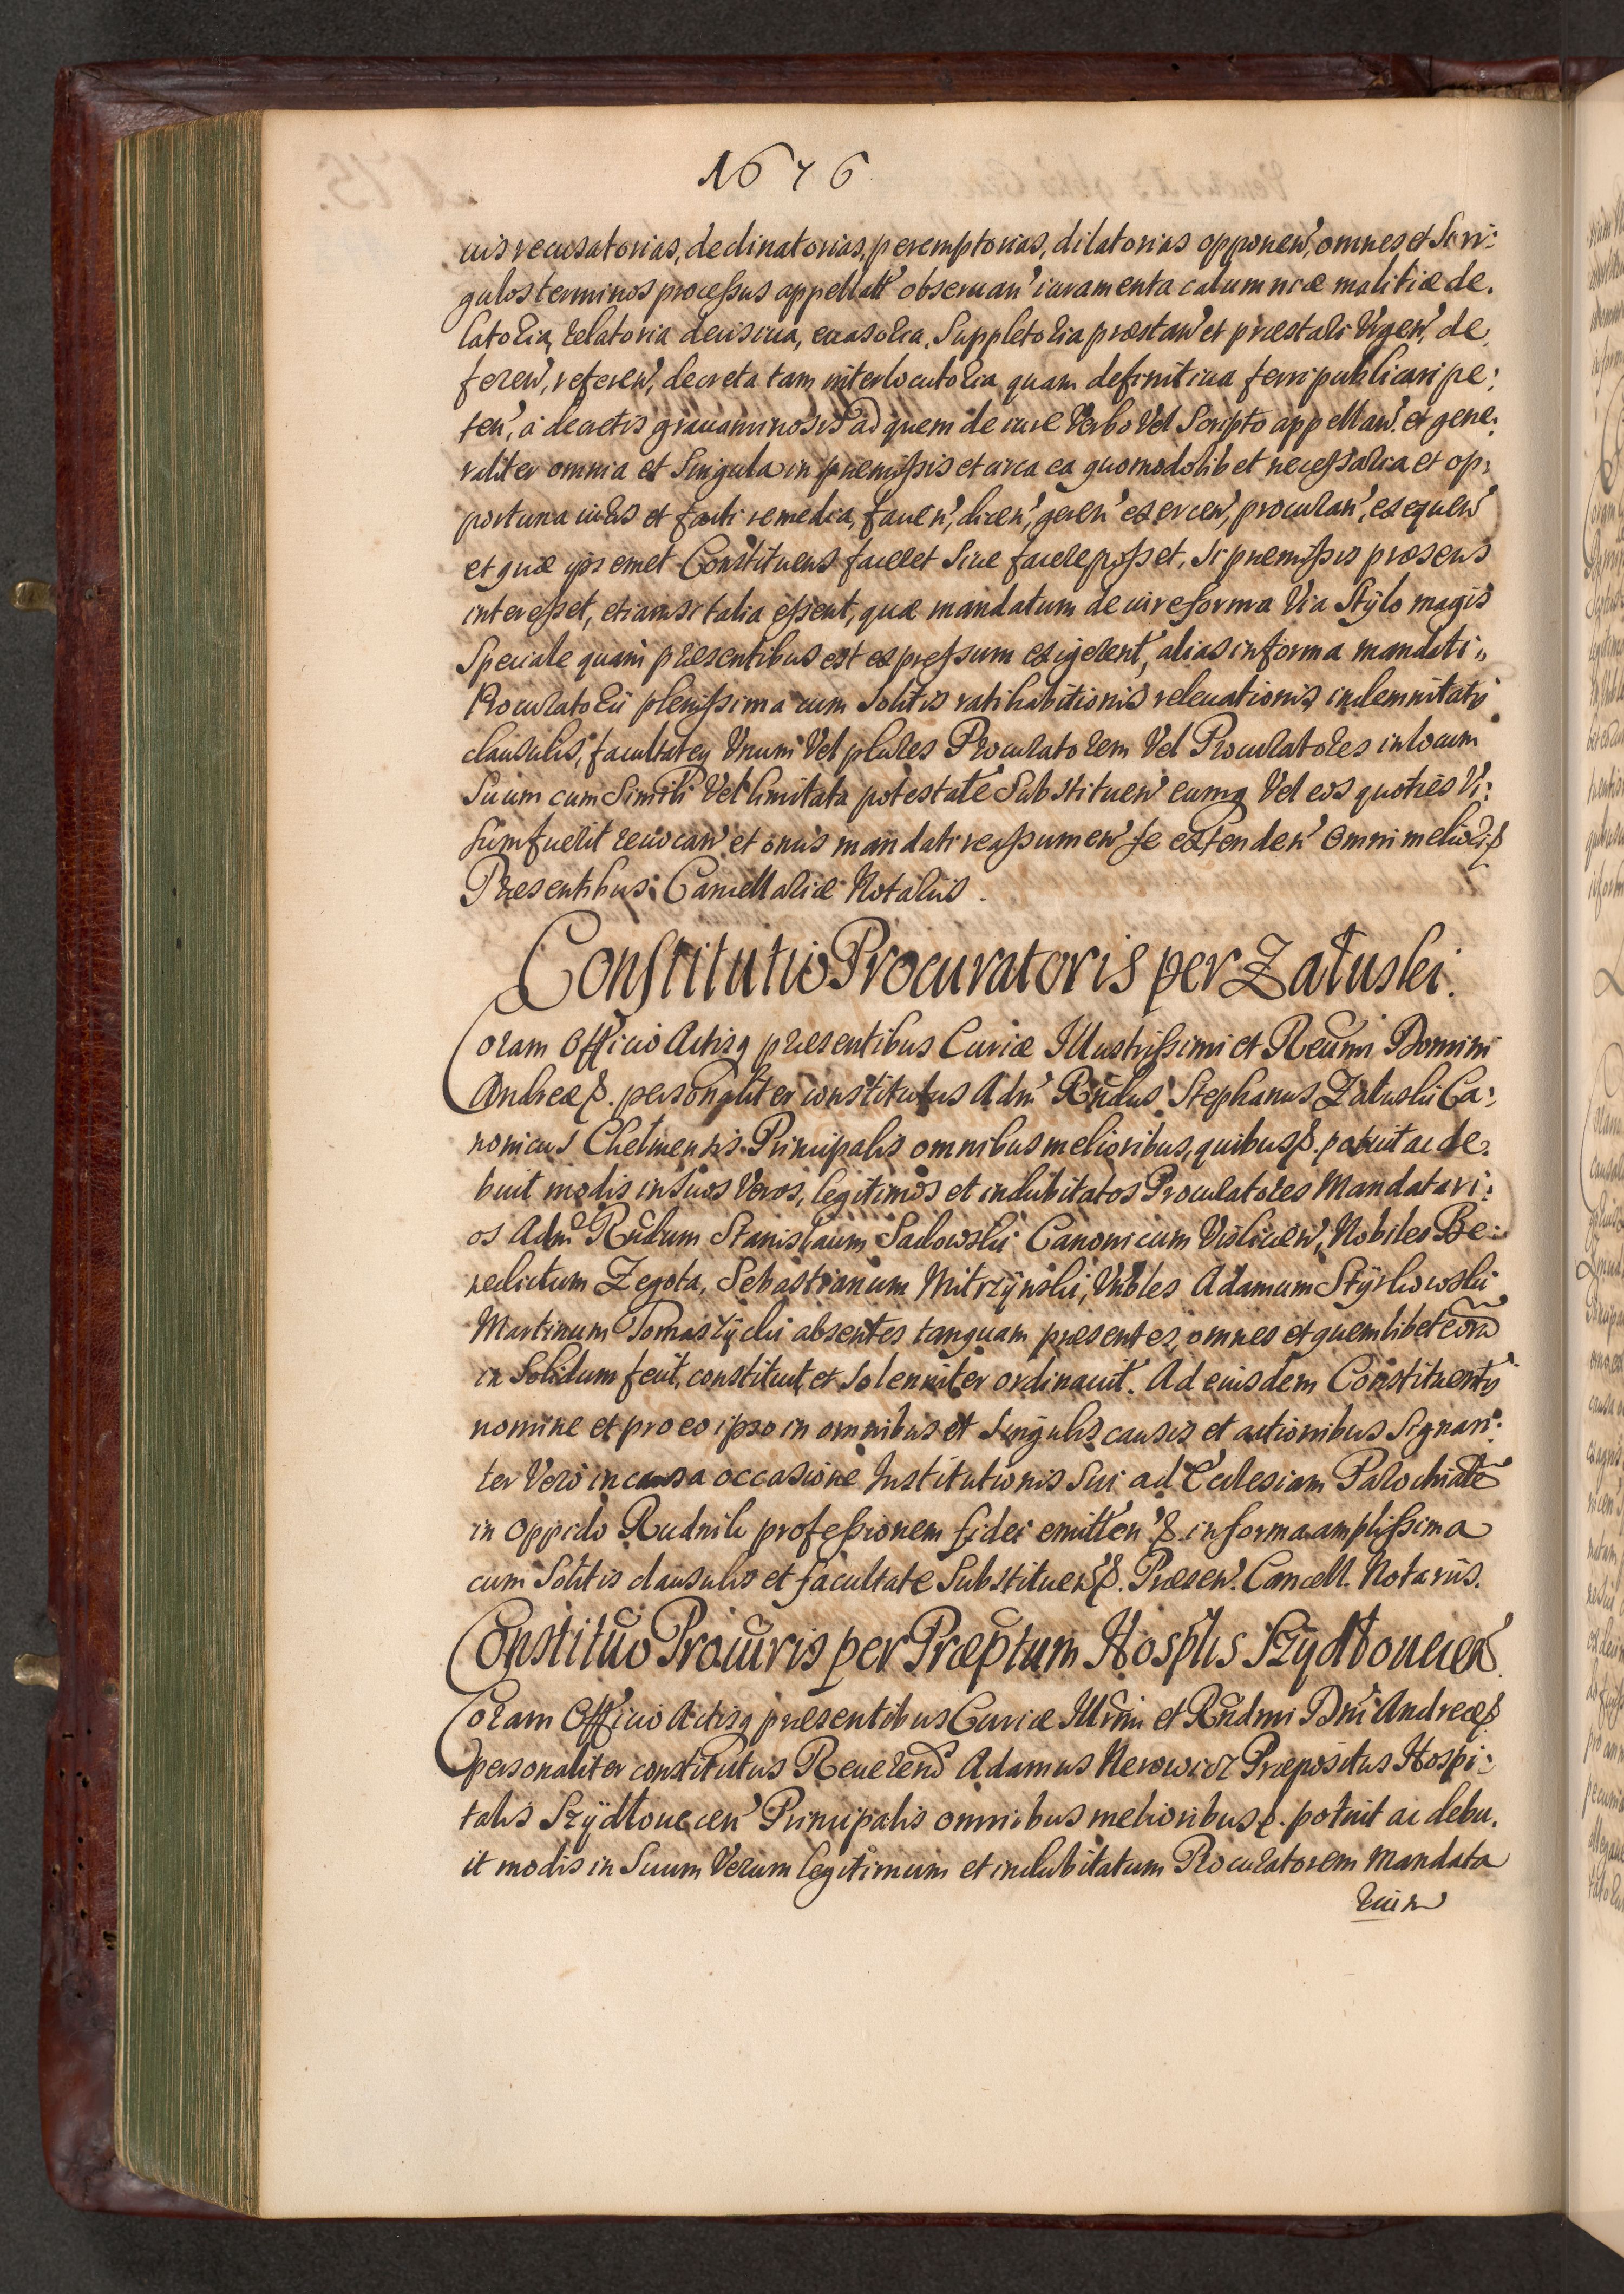 1676
cuis recusatorias, declinatorias, peremptorias, dilatorias opponen', omnes et Sin:
gulos terminos processus appellatt' obseruan' iuramenta calumniæ malitiæ de.
latoria, relatoria decisiua, euasoria, Suppletoria præstan' et præstari Urgen', de
feren', referen', decreta tam interlocutoria quam definitiua ferri publicari pe:
ten', a decretis grauaminosis ad quem de iure Verbo Vel Scripto appellan'. et gene:
raliter omnia et Singula in præmissis et circa ea quomodolibet necessaria et op:
portuna iuris et facti remedia, facien', dicen', geren' exercen', procuran', exequen'
et quæ ipsemet Constituens faceret Siue facere posset, Si præmissis præsens
interesset, etiamsi talia essent, quæ mandatum de iure forma Via Stÿlo magis
Speciale quam præsentibus est expressum exigerent, alias in forma mandati
Procuratorii plenissima cum Solitis ratihabitionis releuationis indemnitatis
clausulis, facultateq Unum Vel plures Procuratorem Vel Procuratores in locum
Suum cum Simili Vel limitata potestate Substituen' eumq Vel eos quoties Vi:
sum fuerit reuocan' et onus mandati reassumen' se extenden' Omni meliori &
Præsentibus Cancellariæ Notariis.
Constitutio Procuratoris per Załuski.
Coram Officio Actisq præsentibus Curiæ Illustrissimi et Reumi Domini
Andreæ &. personaliter constitutus Adm' Rndus Stephanus Załuski Ca:
nonicus Chelmensis Principalis omnibus melioribus, quibus &. potuit ac de:
buit modis in Suos Veros, legitimos et indubitatos Procuratores Mandatari:
os Adm Rndum Stanislaum Sadowski Canonicum Vislicien', Nobiles Be:
nedictum Zegota, Sebastianum Mitrzÿnski, Nobles Adamum Stÿrkowski
Martinum Tomaszÿcki absentes tanquam præsentes, omnes et quemlibet eorū
in Solidum fecit, constituit, et Solenniter ordinauit. Ad eiusdem Constituentis
nomine et pro eo ipso in omnibus et Singulis causis et actionibus Signan:
ter Vero in causa occasione Institutionis Sui ad Ecclesiam Parochialē
in Oppido Rudnik professionem fidei emitten' & in forma amplissima
cum Solitis clausulis et facultate Substituen' &. Præsen'. Cancell. Notariis.
Constitūo Procūris per Præptum Hosplis Szÿdłouecien'.
Coram Officio Actisq præsentibus Curiæ Illmi et Rndmi Dni Andreæ &
personaliter constitutus Reuerend Adamus Nerowicz Præpositus Hospi:
talis Szÿdłouecien' Principalis omnibus melioribus &. potuit ac debu.
it modis in Suum Verum legitimum et indubitatum Procuratorem Mandata
rium